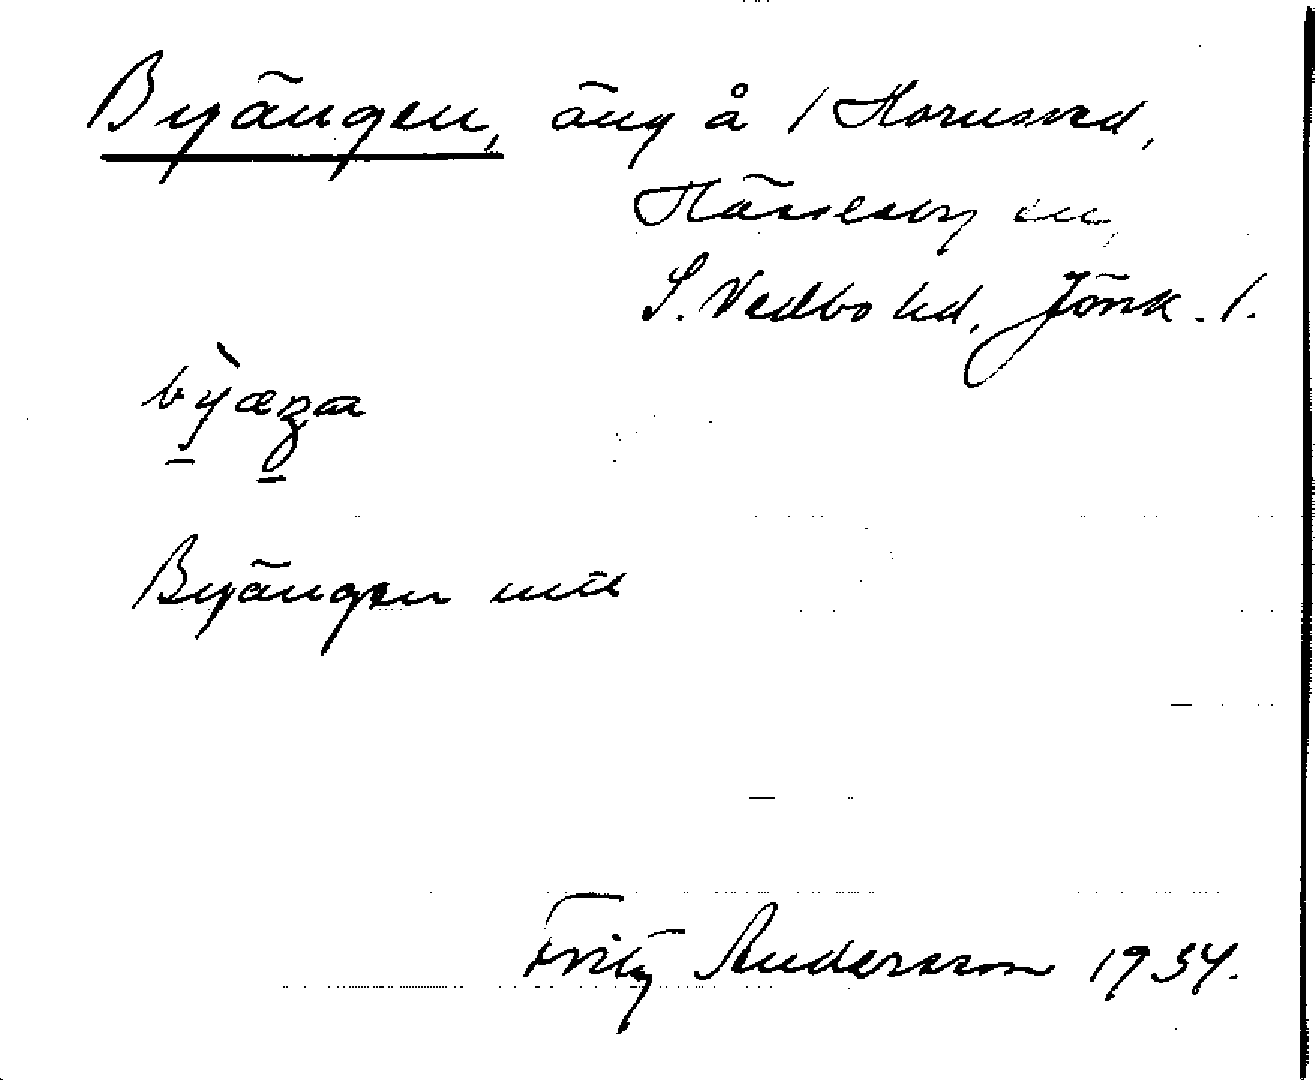 Byängen, äng å 1 Hornsved,
Hässleby sn,
S. Vedbo hd, Jönk. l.
Byängen mä
Fritz Andersson 1934.